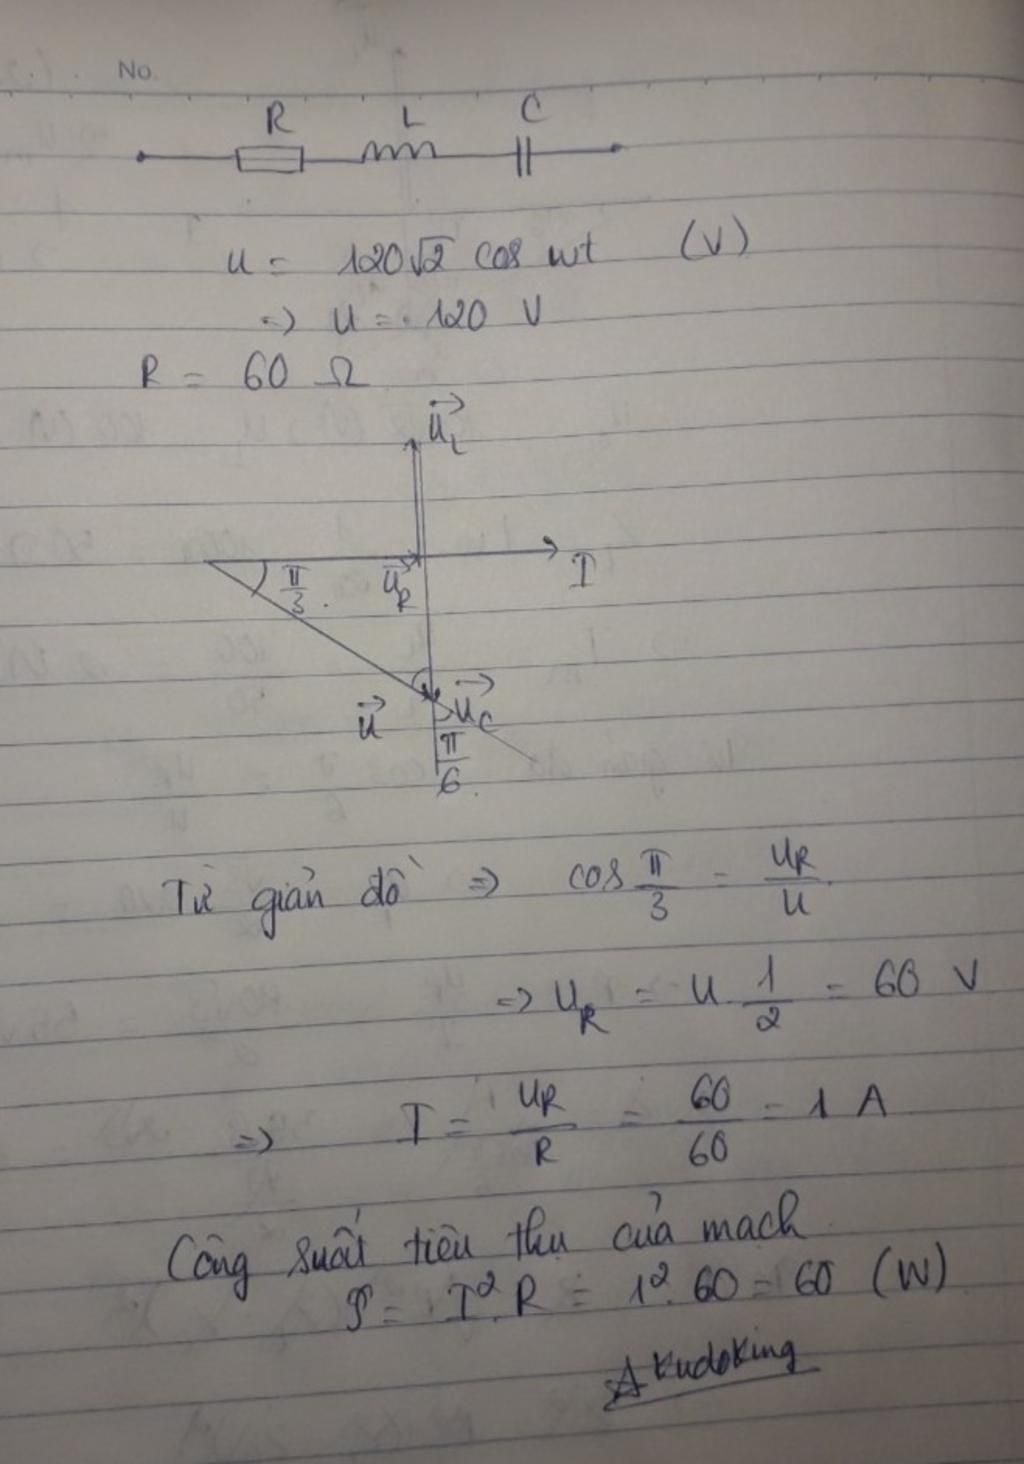 No.
R L C
u = 120√2 cos wt (V)
=> U = 120 V
R = 60 Ω
U_L
π/3 U_R I
U U_C
π/6
Từ giản đồ => cos π/3 = U_R/U
=> U_R = U . 1/2 = 60 V
=> I = U_R/R = 60/60 = 1 A
Công suất tiêu thụ của mạch
P = I². R = 1². 60 = 60 (W)
Akudoking